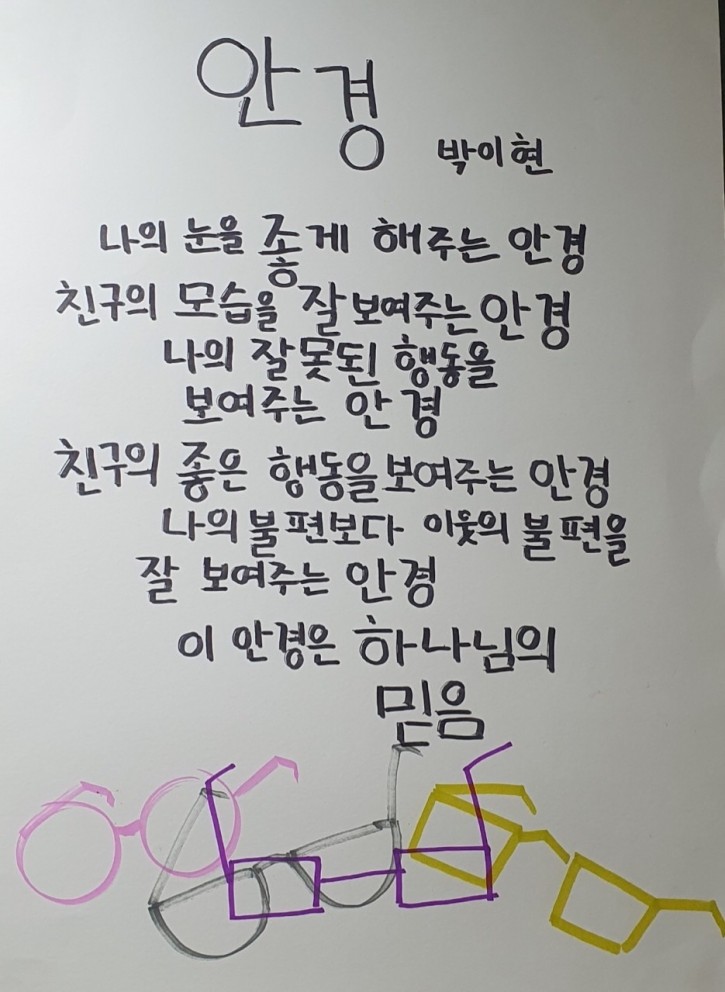 안경
박이현
나의 눈을 좋게 해주는 안경
친구의 모습을 잘 보여주는 안경
나의 잘못된 행동을
보여주는 안경
친구의 좋은 행동을 보여주는 안경
나의 불편보다 이웃의 불편을
잘 보여주는 안경
이 안경은 하나님의
믿음